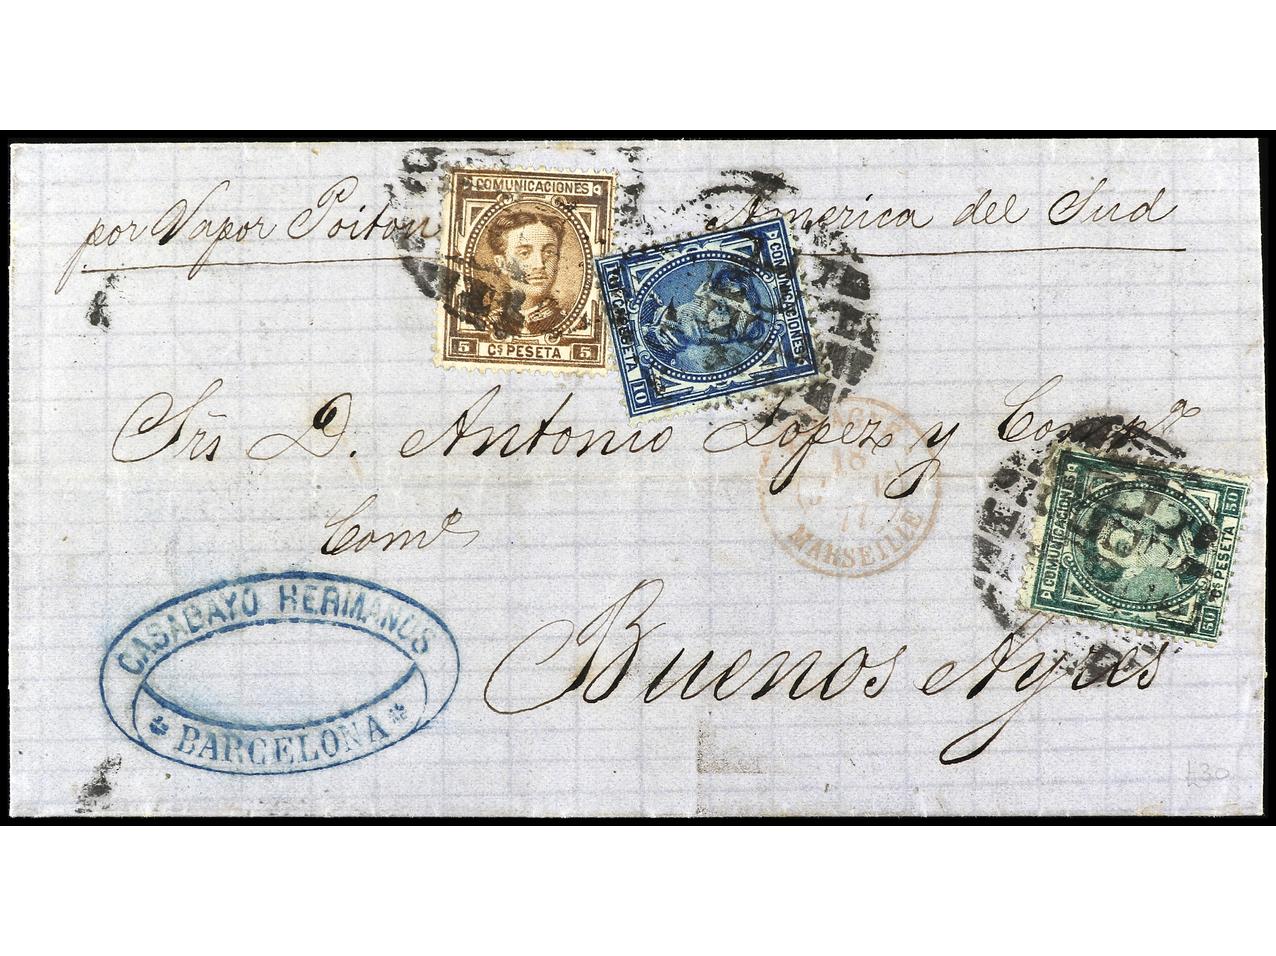 por Vapor Poitou America del Sud
COMUNICACIONES
5 Cs PESETA 5
COMUNICACIONES
10 PESETA
Srs D. Antonio Lopez y Compª
Come
MARSEILLE
18
77
COMUNICACIONES
50 Cs PESETA 50
Buenos Ayres
CASABAYO HERMANOS
BARCELONA
£30